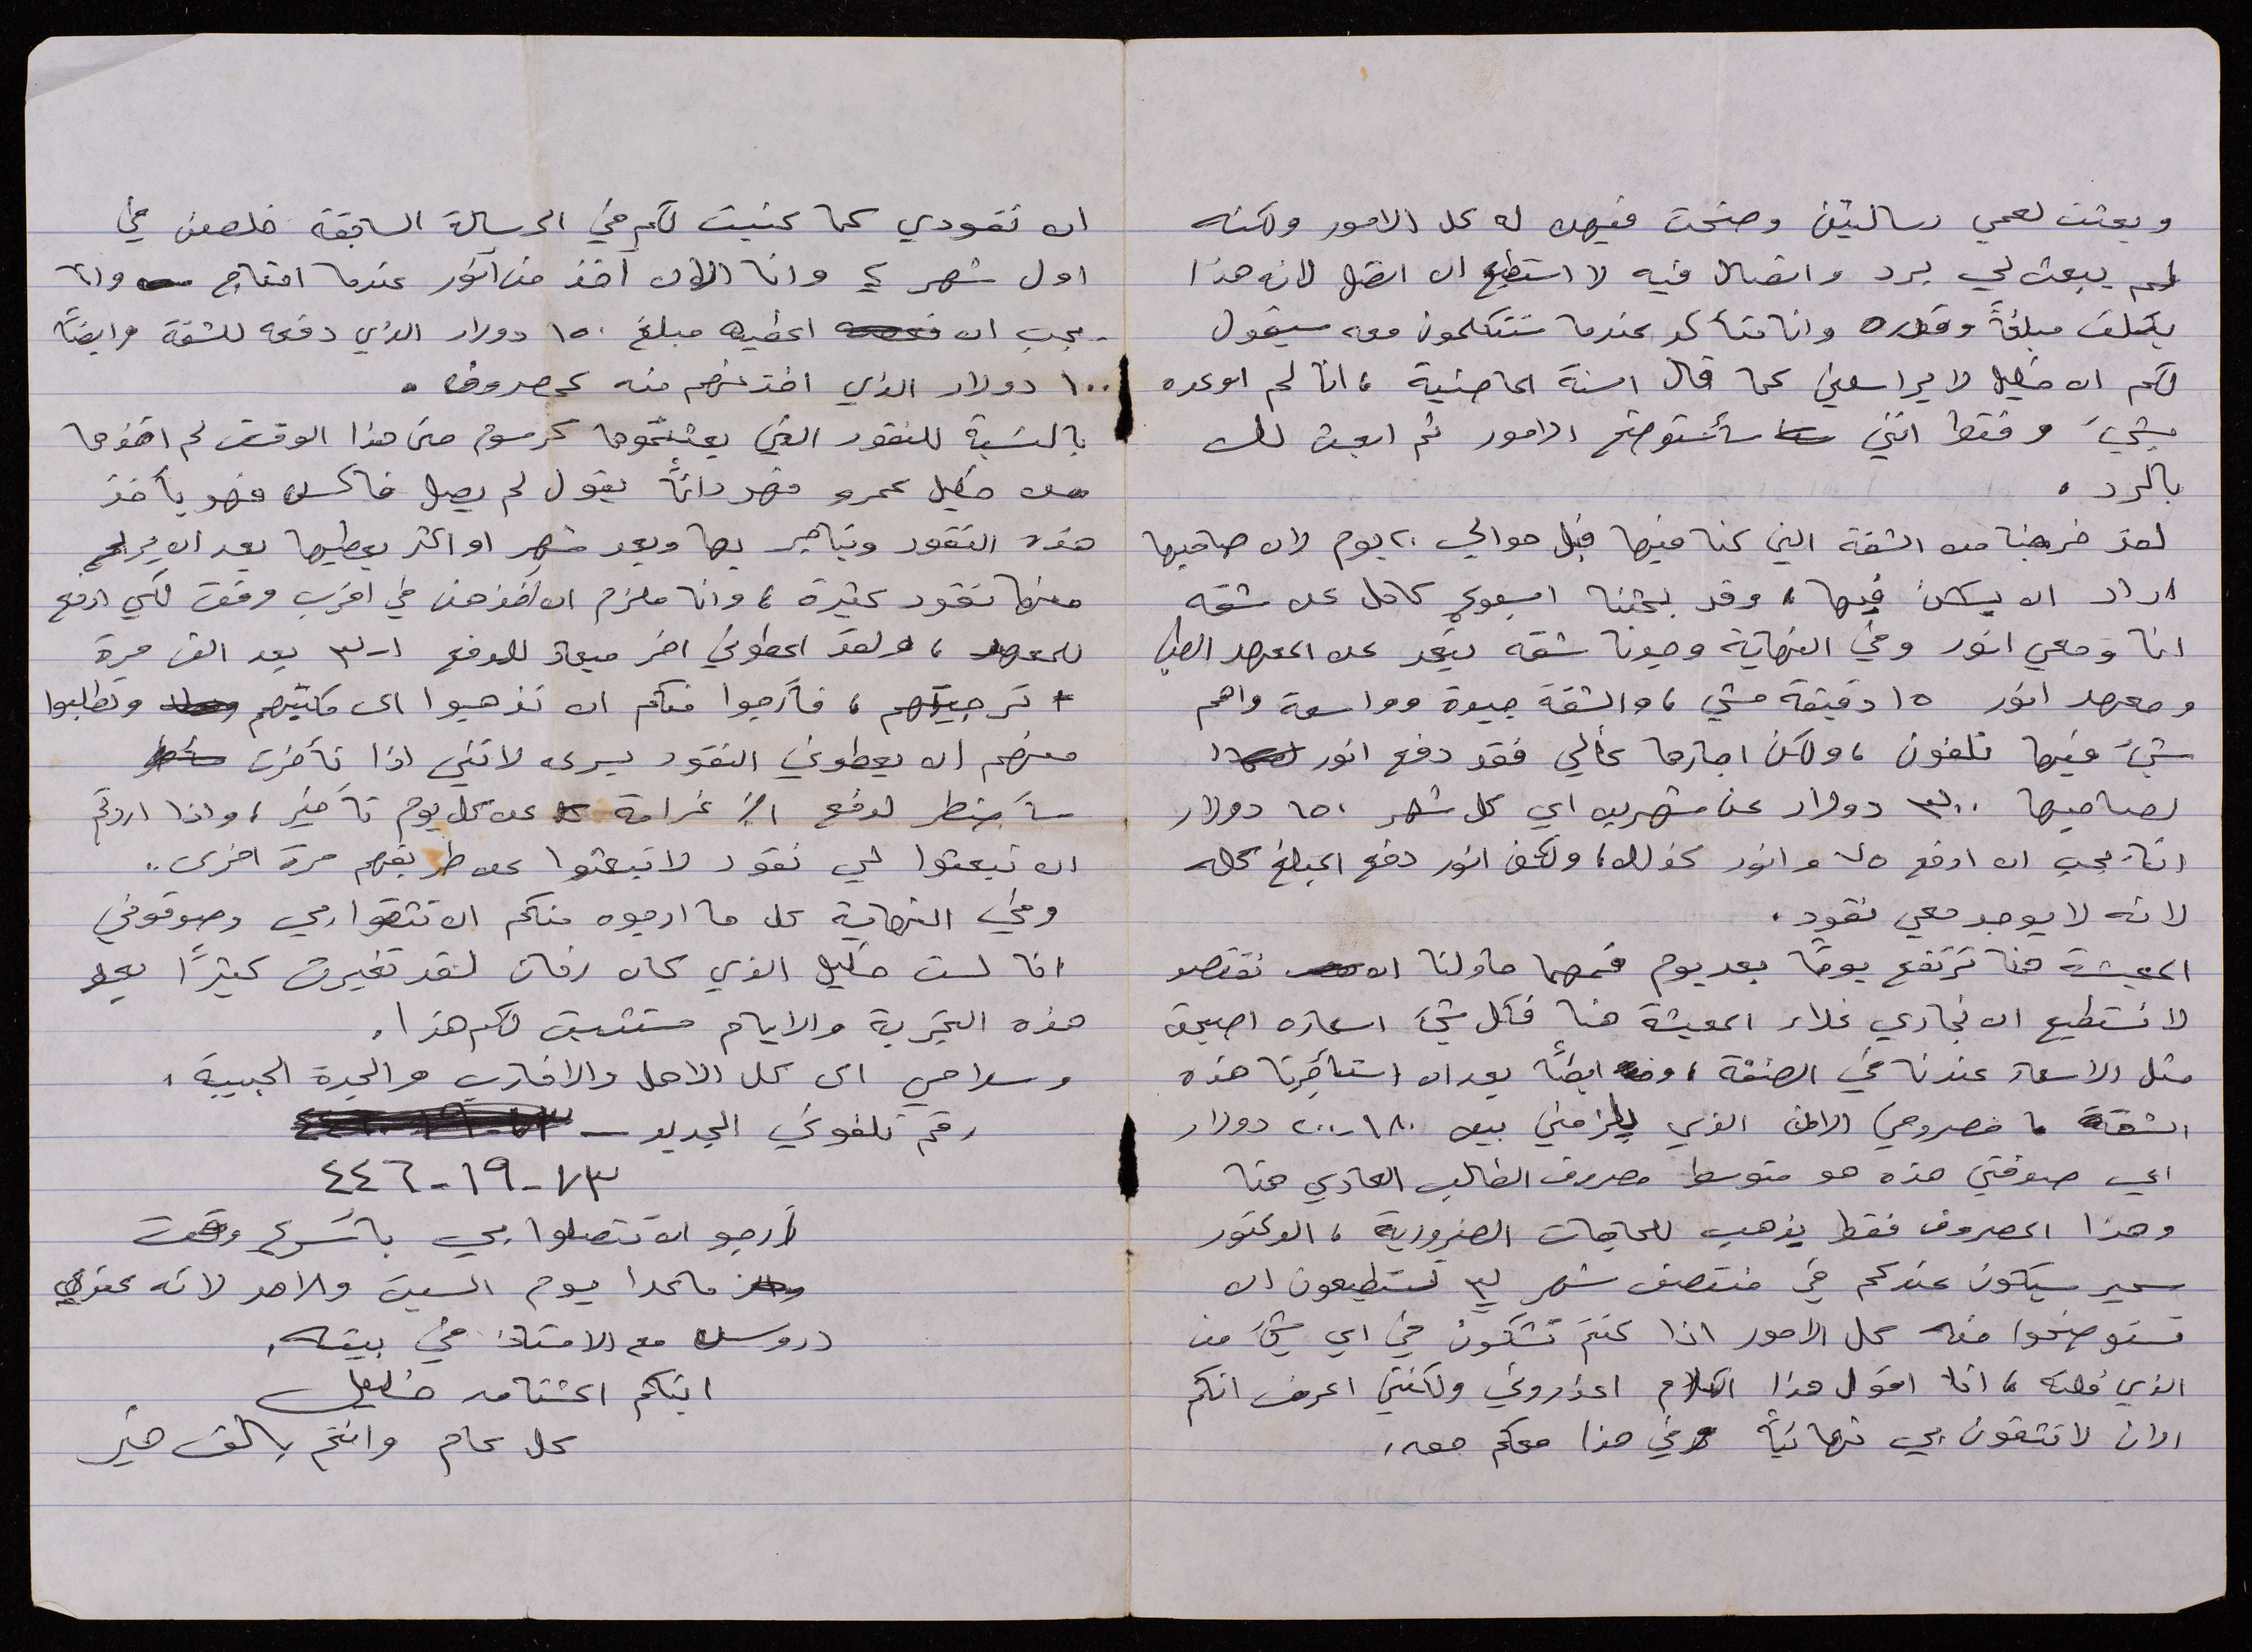 وبعثت لعمي رسالتين وضحت فيهن له كل الامور ولكنه
لم يبعث لي برد واتصال فيه لا استطيع ان اتصل لانه هذا
يكلف مبلغاً وقدره وانا متأكد عندما ستتكلمون معه سيقول
لكم ان خليل لا يراسلني كما قال السنة الماضية ، انا لم اوعده
بشيء وفقط انني سأستوضح الامور ثم ابعث لك
بالرد .
لقد خرجنا من الشقة التي كنا فيها قبل حوالي ٢٠ يوم لان صاحبها
اراد ان يسكن فيها ، وقد بحثنا اسبوع كامل عن شقه
انا ومعي انور وفي النهاية وجدنا شقه تبعد عن المعهد الطبي
ومعهد انور ١٥ دقيقة مشي ، والشقة جيدة وواسعة واهم
شيء فيها تلفون ، ولكن اجارها غالي فقد دفع انور
لصاحبها ٣٠٠ دولار عن شهرين اي كل شهر ١٥٠ دولار
انا يجب ان ادفع ٧٥ وانور كذلك ، ولكن انور دفع المبلغ كله
لانه لا يوجد معي نقود .
المعيشة هنا ترتفع يوماً بعد يوم فمهما حاولنا ان نقتصد
لا نستطيع ان نجاري غلاء المعيشة هنا فكل شيء اسعاره اصبحت
مثل الاسعار عندنا في الضفة ، ايضاً بعد ان استأجرنا هذه
الشقة ، فمصروفي الان الذي يلزمني بين ١٨٠-٢٠٠ دولار
اي صدقني هذه هو متوسط مصروف الطالب العادي هنا
وهذا المصروف فقط يذهب للحاجات الضرورية ، الدكتور
سمير سيكون عندكم في منتصف شهر ٣ تستطيعون ان
تستوضحوا منه كل الامور اذا كنتم تشكون في اي شيء من
الذي قلته ، انا اقول هذا الكلام اعذروني ولكنني اعرف انكم
الان لا تثقون بي نهائياً وفي هذا معكم معه ,
ان نقودي كما كتبت لكم في الرسالة السابقة خلصن في
اول شهر ٢ وانا الان آخذ من أنور عندما احتاج وانا
يجب ان اعطيه مبلغ ١٥٠ دولار الذي دفعه للشقة وايضاً
١٠٠ دولار الذي اخذتهم منه كمصروف .
بالنسبة للنقود التي بعثتموها كرسوم حتى هذا الوقت لم اخذها
من خليل عمرو فهو دائماً يقول لم يصل فاكس فهو يأخذ
هذه النقود ويتاجر بها وبعد شهر او اكثر يعطيها بعد ان يربح
منها نقود كثيرة ، وانا ملزم ان اخذهن في اقرب وقت لكي ادفع
للمعهد ، ولقد اعطوني اخر ميعاد للدفع ١-٣ بعد الف مرة
ترجيتهم ، فأرجوا منكم ان تذهبوا الى مكتبهم وتطلبوا
منهم ان يعطوني النقود بسرعه لانني اذا تأخرت
سأضطر لدفع ١٪ غرامة عن كل يوم تأخير ، واذا اردتم
ان تبعثوا لي نقود لا تبعثوا عن طريقهم مرة اخرى ..
وفي النهاية كل ما ارجوه منكم ان تثقوا بي وصدقوني
انا لست خليل الذي كان زمان لقد تغيرت كثيراً بعد
هذه التجربة والايام ستثبت لكم هذا .
وسلامي الى كل الاهل والاقارب والجدة الحبيبة ,
رقم تلفوني الجديد -
٤٤٦-١٩-٧٣
أرجو ان تتصلوا بي بأسرع وقت
ماعدا يوم السبت والاحد لانه عندي
دروس مع الاستاذ في بيته .
ابنكم المشتاق خليل
كل عام وانتم بألف خير